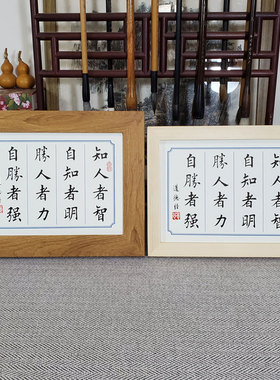 知人者智
自知者明
勝人者力
自勝者强
知人者智
自知者明
勝人者力
自勝者强
道德经